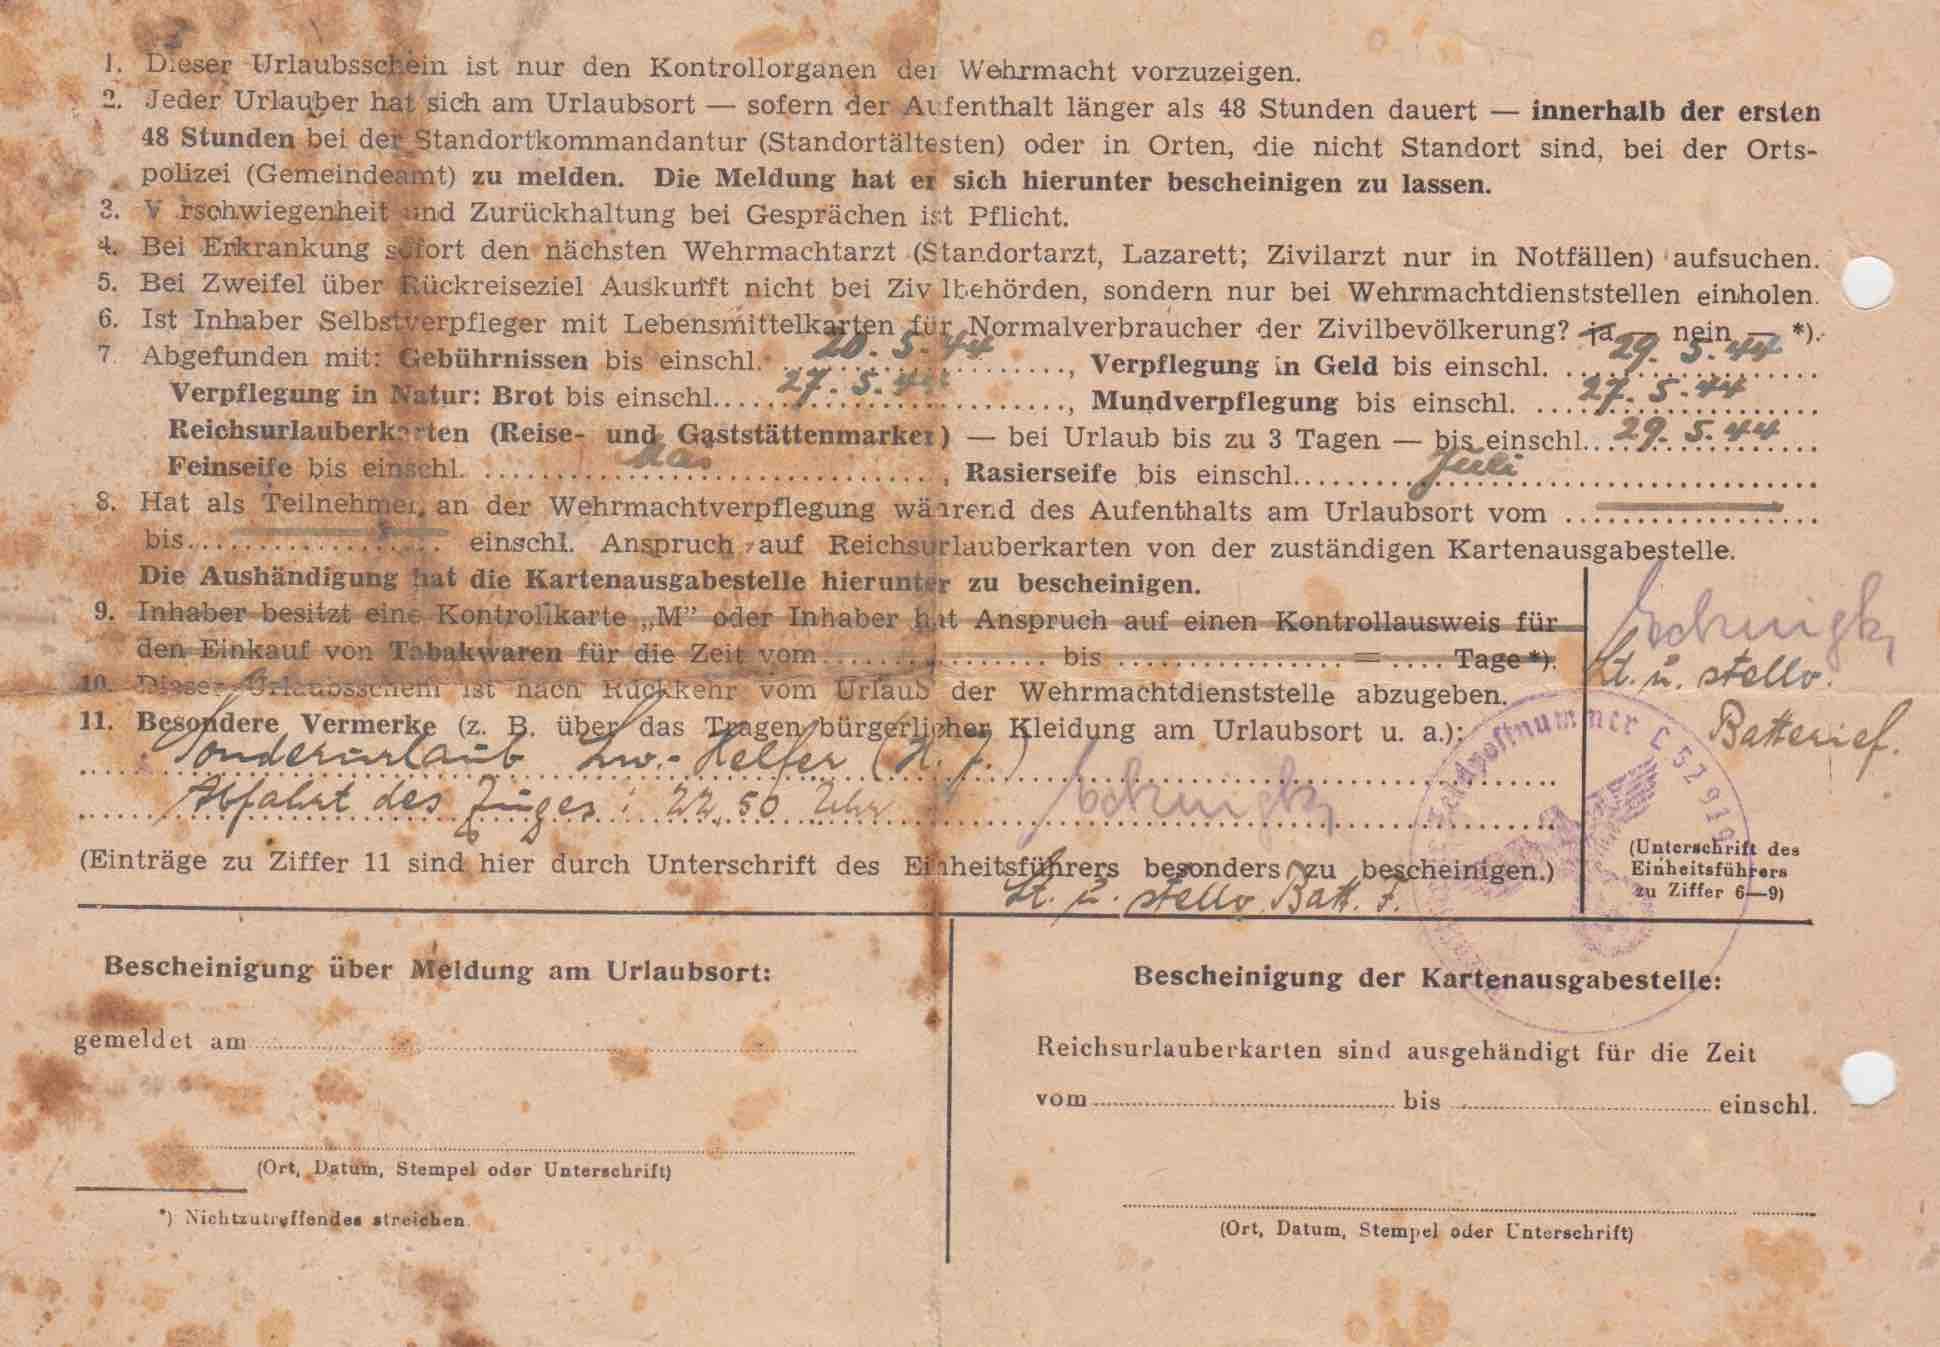 1. Dieser Urlaubsschein ist nur den Kontrollorganen der Wehrmacht vorzuzeigen.
2. Jeder Urlauber hat sich am Urlaubsort — sofern der Aufenthalt länger als 48 Stunden dauert — innerhalb der ersten
48 Stunden bei der Standortkommandantur (Standortältesten) oder in Orten, die nicht Standort sind, bei der Orts-
polizei (Gemeindeamt) zu melden. Die Meldung hat er sich hierunter bescheinigen zu lassen.
3. Verschwiegenheit und Zurückhaltung bei Gesprächen ist Pflicht.
4. Bei Erkrankung sofort den nächsten Wehrmachtarzt (Standortarzt, Lazarett; Zivilarzt nur in Notfällen) aufsuchen.
5. Bei Zweifel über Rückreiseziel Auskunft nicht bei Zivilbehörden, sondern nur bei Wehrmachtdienststellen einholen.
6. Ist Inhaber Selbstverpfleger mit Lebensmittelkarten für Normalverbraucher der Zivilbevölkerung? ja — nein — *).
7. Abgefunden mit: Gebührnissen bis einschl. 20. 5. 44, Verpflegung in Geld bis einschl. 29. 5. 44
Verpflegung in Natur: Brot bis einschl. 27. 5. 44, Mundverpflegung bis einschl. 27. 5. 44
Reichsurlauberkarten (Reise- und Gaststättenmarken) — bei Urlaub bis zu 3 Tagen — bis einschl. 29. 5. 44
Feinseife bis einschl. Mai, Rasierseife bis einschl. Juli
8. Hat als Teilnehmer an der Wehrmachtverpflegung während des Aufenthalts am Urlaubsort vom
bis einschl. Anspruch auf Reichsurlauberkarten von der zuständigen Kartenausgabestelle.
Die Aushändigung hat die Kartenausgabestelle hierunter zu bescheinigen.
9. Inhaber besitzt eine Kontrollkarte „M” oder Inhaber hat Anspruch auf einen Kontrollausweis für
den Einkauf von Tabakwaren für die Zeit vom bis = Tage *).
10. Dieser Urlaubsschein ist nach Rückkehr vom Urlaub der Wehrmachtdienststelle abzugeben.
11. Besondere Vermerke (z. B. über das Tragen bürgerlicher Kleidung am Urlaubsort u. a.):
Sonderurlaub Lw.-Helfer (H. J.)
Abfahrt des Zuges: 22,50 Uhr
(Einträge zu Ziffer 11 sind hier durch Unterschrift des Einheitsführers besonders zu bescheinigen.)
Lt. u. stellv. Batt. F.
Lt. u. stellv.
Batterief.
Feldpostnummer L 52 919
(Unterschrift des
Einheitsführers
zu Ziffer 6—9)
Bescheinigung über Meldung am Urlaubsort:
gemeldet am
(Ort, Datum, Stempel oder Unterschrift)
*) Nichtzutreffendes streichen.
Bescheinigung der Kartenausgabestelle:
Reichsurlauberkarten sind ausgehändigt für die Zeit
vom bis einschl.
(Ort, Datum, Stempel oder Unterschrift)